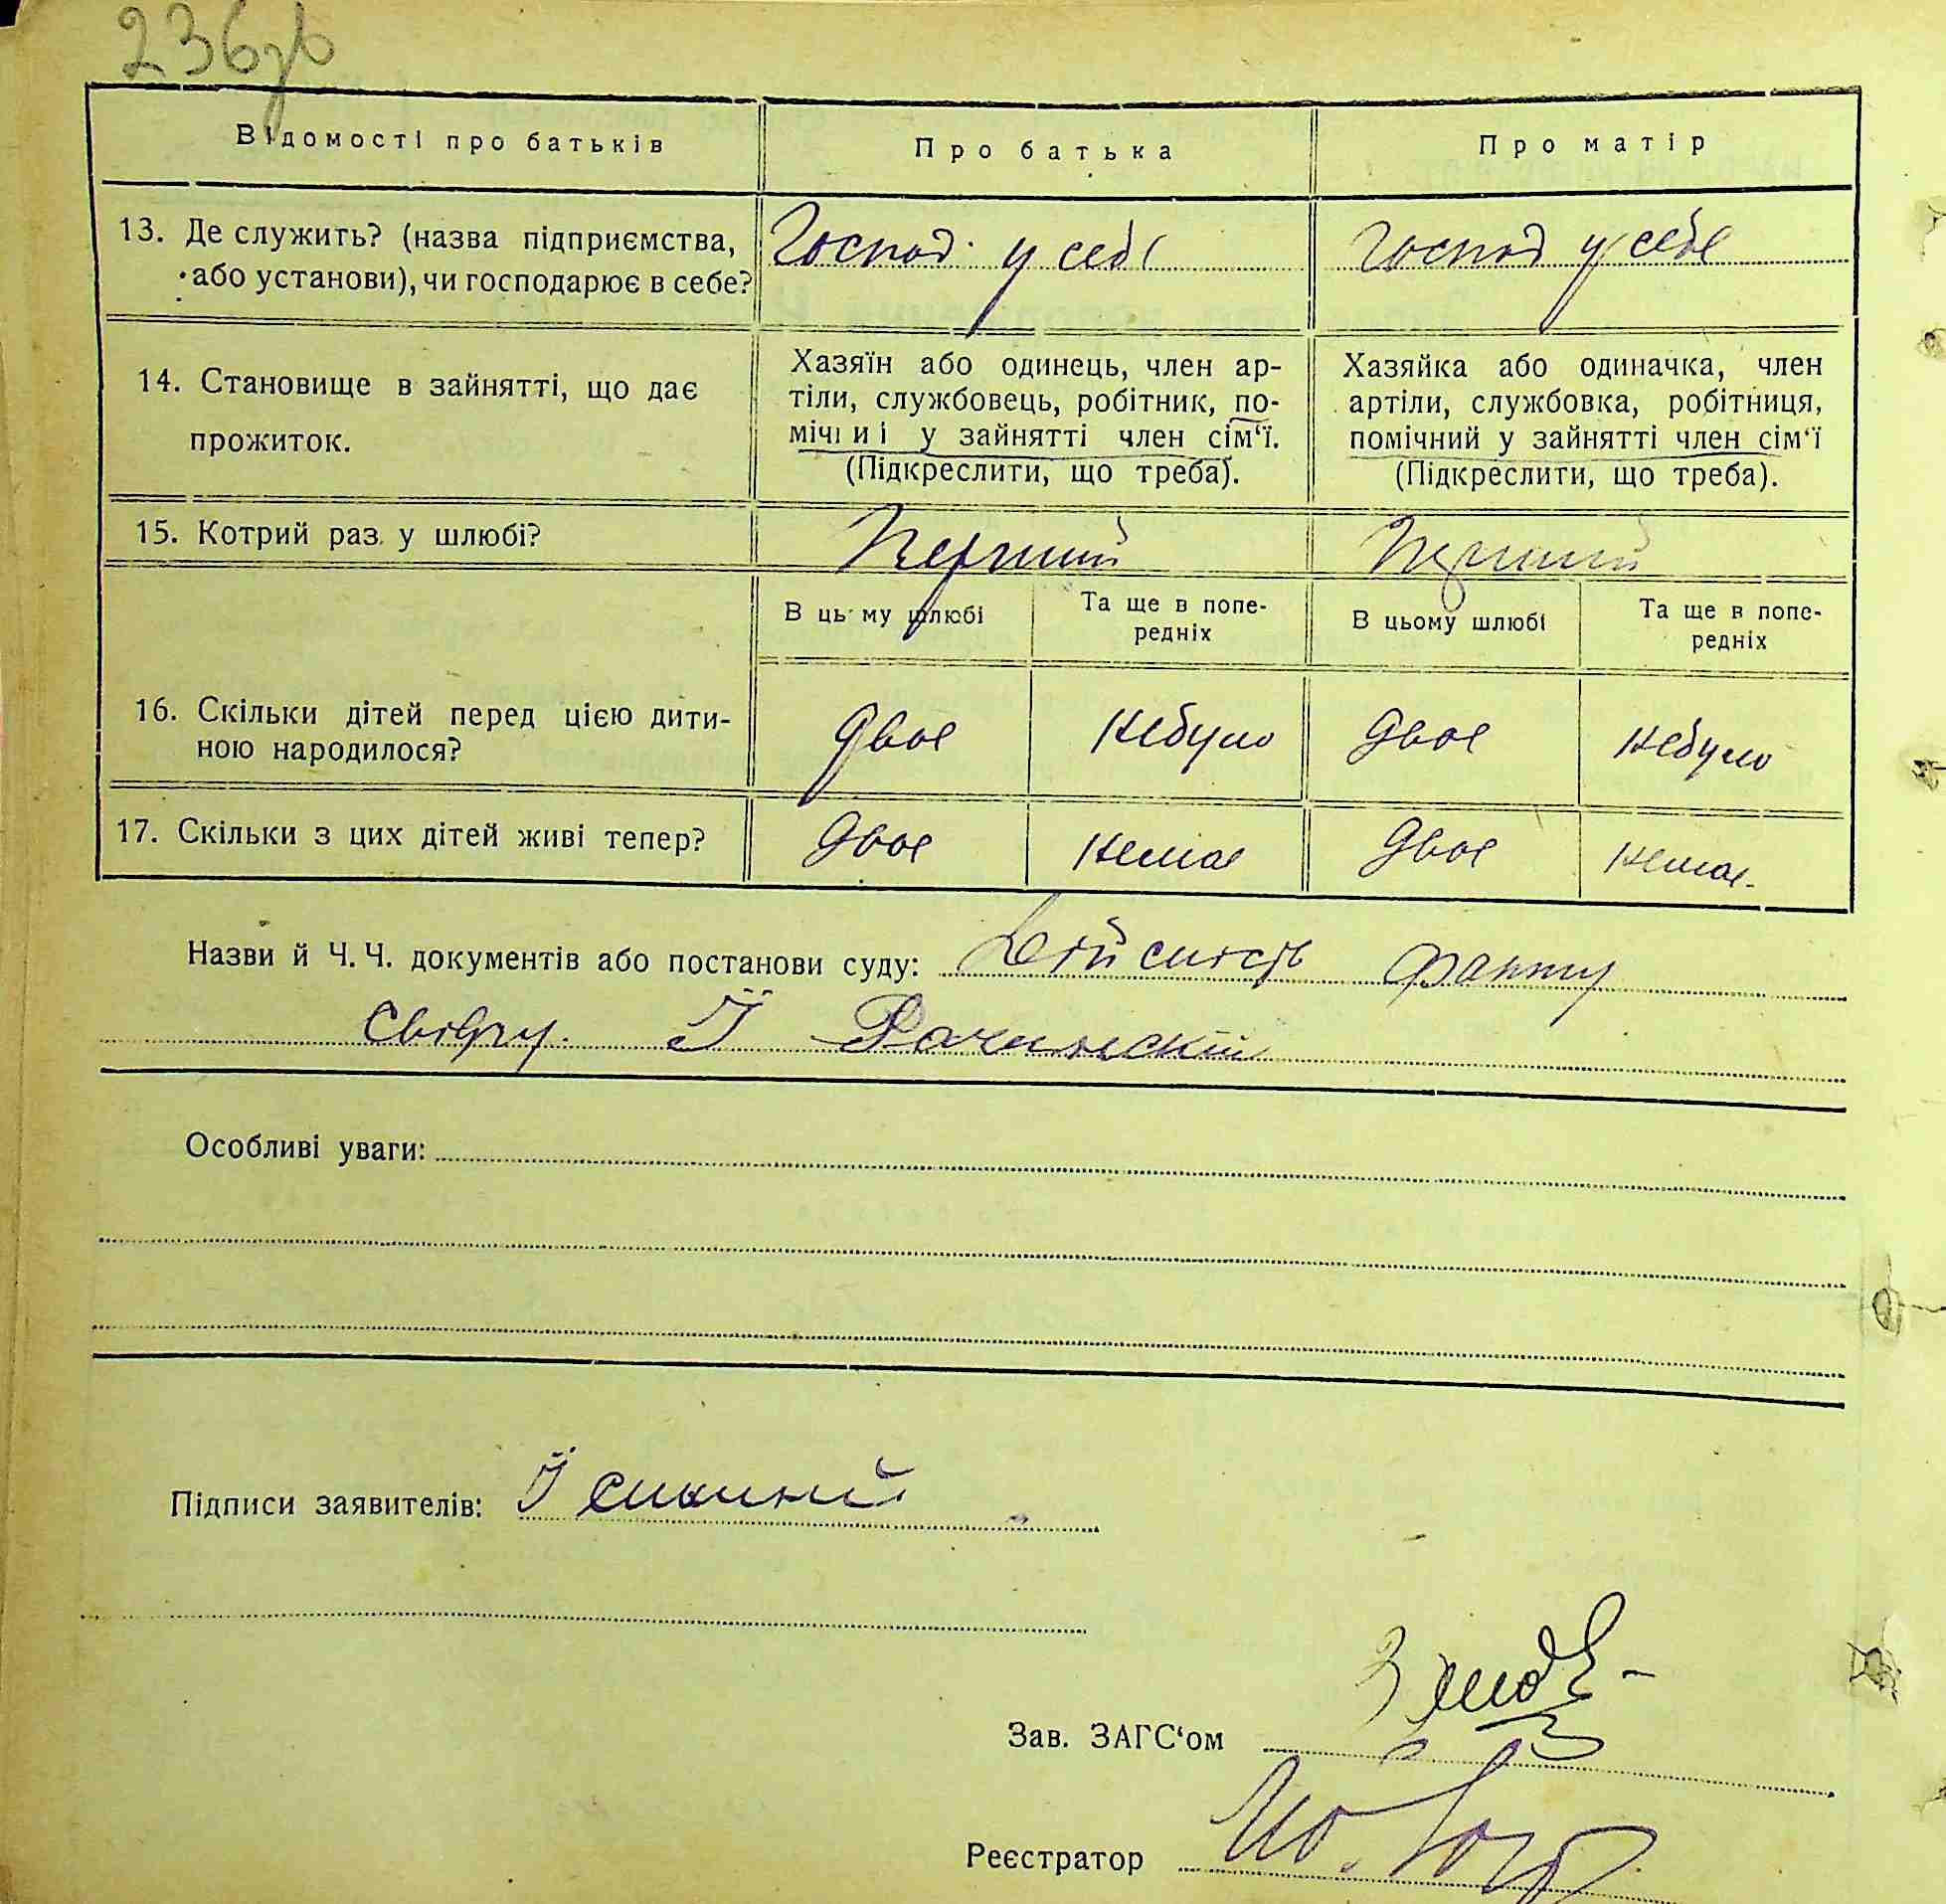 236зв
Відомості про батьків
Про батька
Про матір
13. Де служить? (назва підприємства,
або установи), чи господарює в себе?
Господ. у себе
Господ у себе
14. Становище в зайнятті, що дає
прожиток.
Хазяїн або одинець, член ар-
тіли, службовець, робітник, по-
мічний у зайнятті член сім‘ї.
(Підкреслити, що треба).
Хазяйка або одиначка, член
артіли, службовка, робітниця,
помічний у зайнятті член сім‘ї
(Підкреслити, що треба).
15. Котрий раз у шлюбі?
Перший
Перший
В цьому шлюбі
Та ще в попе-
редніх
В цьому шлюбі
Та ще в попе-
редніх
16. Скільки дітей перед цією дити-
ною народилося?
Двоє
небуло
Двоє
небуло
17. Скільки з цих дітей живі тепер?
Двоє
немає
Двоє
немає
Назви й Ч. Ч. документів або постанови суду: Дійсність факту
Ї Рачинский
Особливі уваги:
Підписи заявителів:
Зав. ЗАГС‘ом
Реєстратор